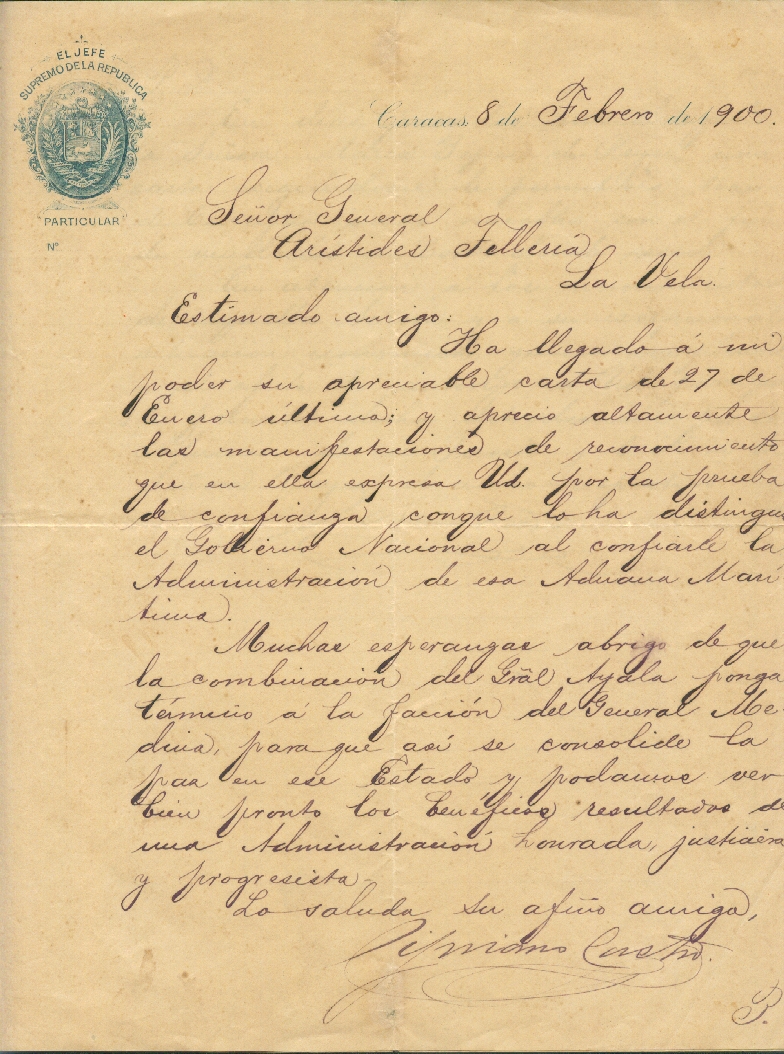 EL JEFE
SUPREMO DE LA REPUBLICA
PARTICULAR
Nº
Caracas, 8 de Febrero de 1900.
Señor General
Arístides Tellería
La Vela.
Estimado amigo:
Ha llegado á mi
poder su apreciable carta de 27 de
Enero último; y aprecio altamente
las manifestaciones de reconocimiento
que en ella expresa Ud. por la prueba
de confianza conque lo ha distingui
el Gobierno Nacional al confiarle la
Administración de esa Aduana Marí
tima.
Muchas esperanzas abrigo de que
la combinación del Grãl Ayala ponga
término á la facción del General Me-
dina, para que así se consolide la
paz en ese Estado y podamos ver
bien pronto los benéficos resultados de
una Administración honrada, justiciera
y progresista.
Lo saluda su afmo amigo,
Cipriano Castro.
P.